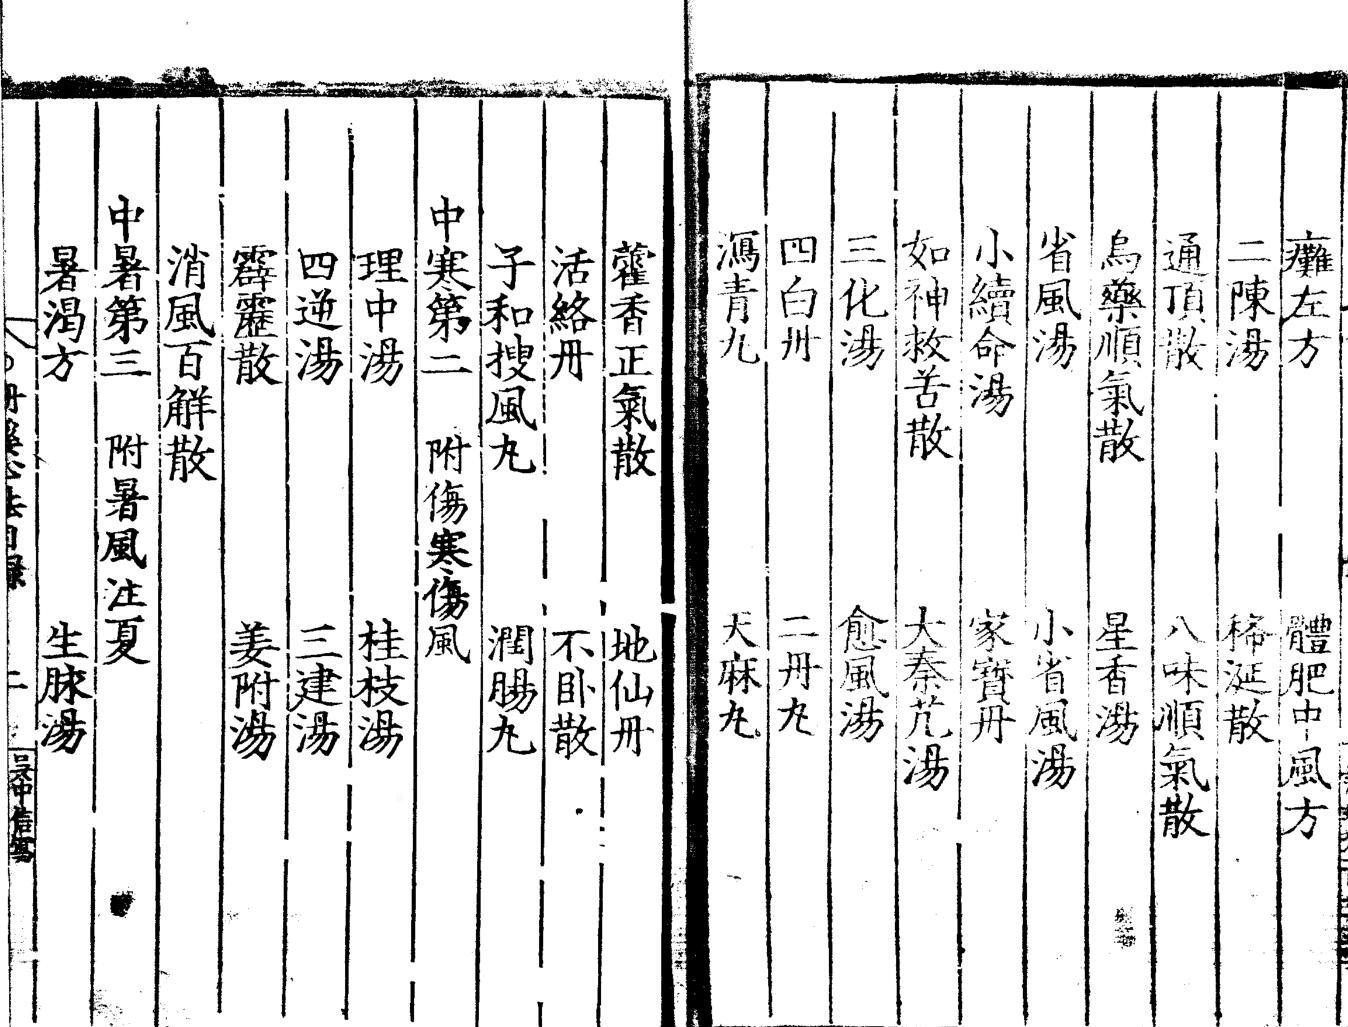 癱左方 體肥中風方
二陳湯 稀涎散
通頂散 八味順氣散
烏藥順氣散 星香湯
省風湯 小省風湯
小續命湯 家寶丹
如神救苦散 大秦艽湯
三化湯 愈風湯
四白丹 二丹丸
瀉青丸 天麻丸
藿香正氣散 地仙丹
活絡丹 不卧散
子和搜風丸 潤腸丸
中寒第二 附傷寒傷風
理中湯 桂枝湯
四逆湯 三建湯
霹靂散 姜附湯
消風百解散
中暑第三 附暑風注夏
暑渴方 生脉湯
丹溪心法目錄 二 吳中信寫